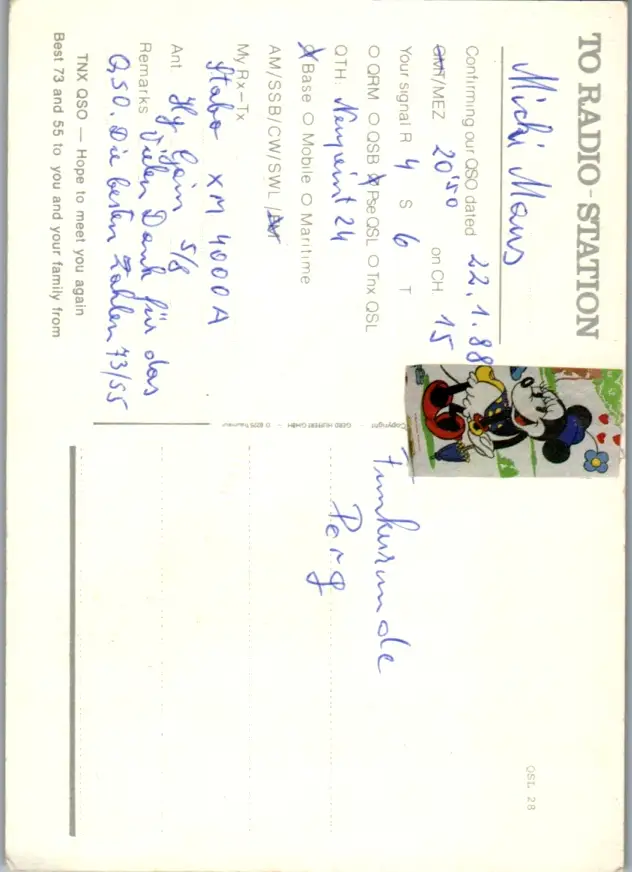 TO RADIO-STATION
Michi Maus
Confirming our QSO dated 22.1.88
GMT/MEZ 20'50 on CH. 15
Your signal R 4 S 6 T
O QRM O QSB O Pse QSL O Tnx QSL
QTH: 24
O Base O Mobile O Maritime
AM/SSB/CW/SWL/
My Rx–Tx
Stabo XM 4000 A
Ant Hy Gain 5/8
Remarks Vielen Dank für das
QSO. Die besten Zahlen 73/55
TNX QSO — Hope to meet you again
Best 73 and 55 to you and your family from
Funkrunde
Perg
QSL 28